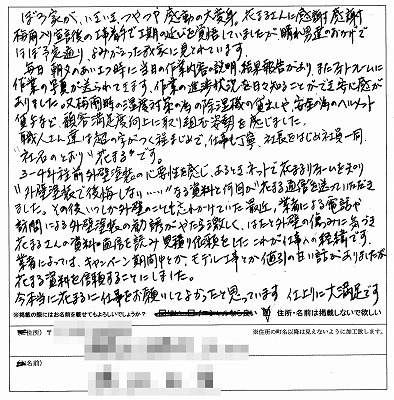 ぼろ家が、いまいま、つやつや 感動の大変身。花まるさんに感謝感謝
梅雨入り宣言後の工事着手で工期の延びを覚悟していましたが晴れ男のおかげで
ほぼ予定通り、よみがえった我家に見とれています。
毎日 朝夕のあいさつ時に当日の作業内容の説明、結果報告があり、またフォトフレームに
作業の写真が送られてきます。作業の進捗状況を日々知ることができ安心感が
ありました。又梅雨時の湿度対策の為の除湿機の貸出しや、安全の為のヘルメット
貸与など、顧客満足度向上に取り組む姿勢を感じました。
"職人さん達は超の字がつくほどまじめで、仕事も丁寧、社長をはじめ社員一同、
"社名のとおり"花まる"です。
3〜4年程前外壁塗装の必要性を感じ、あるときネットで花まるリフォームを知り
"外壁塗装で後悔しない……"なる資料と何回か花まる通信を送っていただき
ました。その後いつしか外壁のことも忘れかけていた最近、業者による電話や
訪問による外壁塗装の勧誘がやたら激しく、はたと外壁の傷みに気づき
花まるさんの資料や通信を読み 見積り依頼をしたこれが仕事への経緯です。
業者によっては、キャンペーン期間中とか、モデル工事とか値引の甘い話がありましたが
花まる資料を信頼することにしました。
今本当に花まるに仕事をお願いしてよかったと思っています 仕上りに大満足です
※掲載の際にはお名前を載せてもよろしいでしょうか？ 住所・名前は掲載しないで欲しい
(ご住所) 〒 ※住所の町名以降は見えないように加工致します。
(お名前)